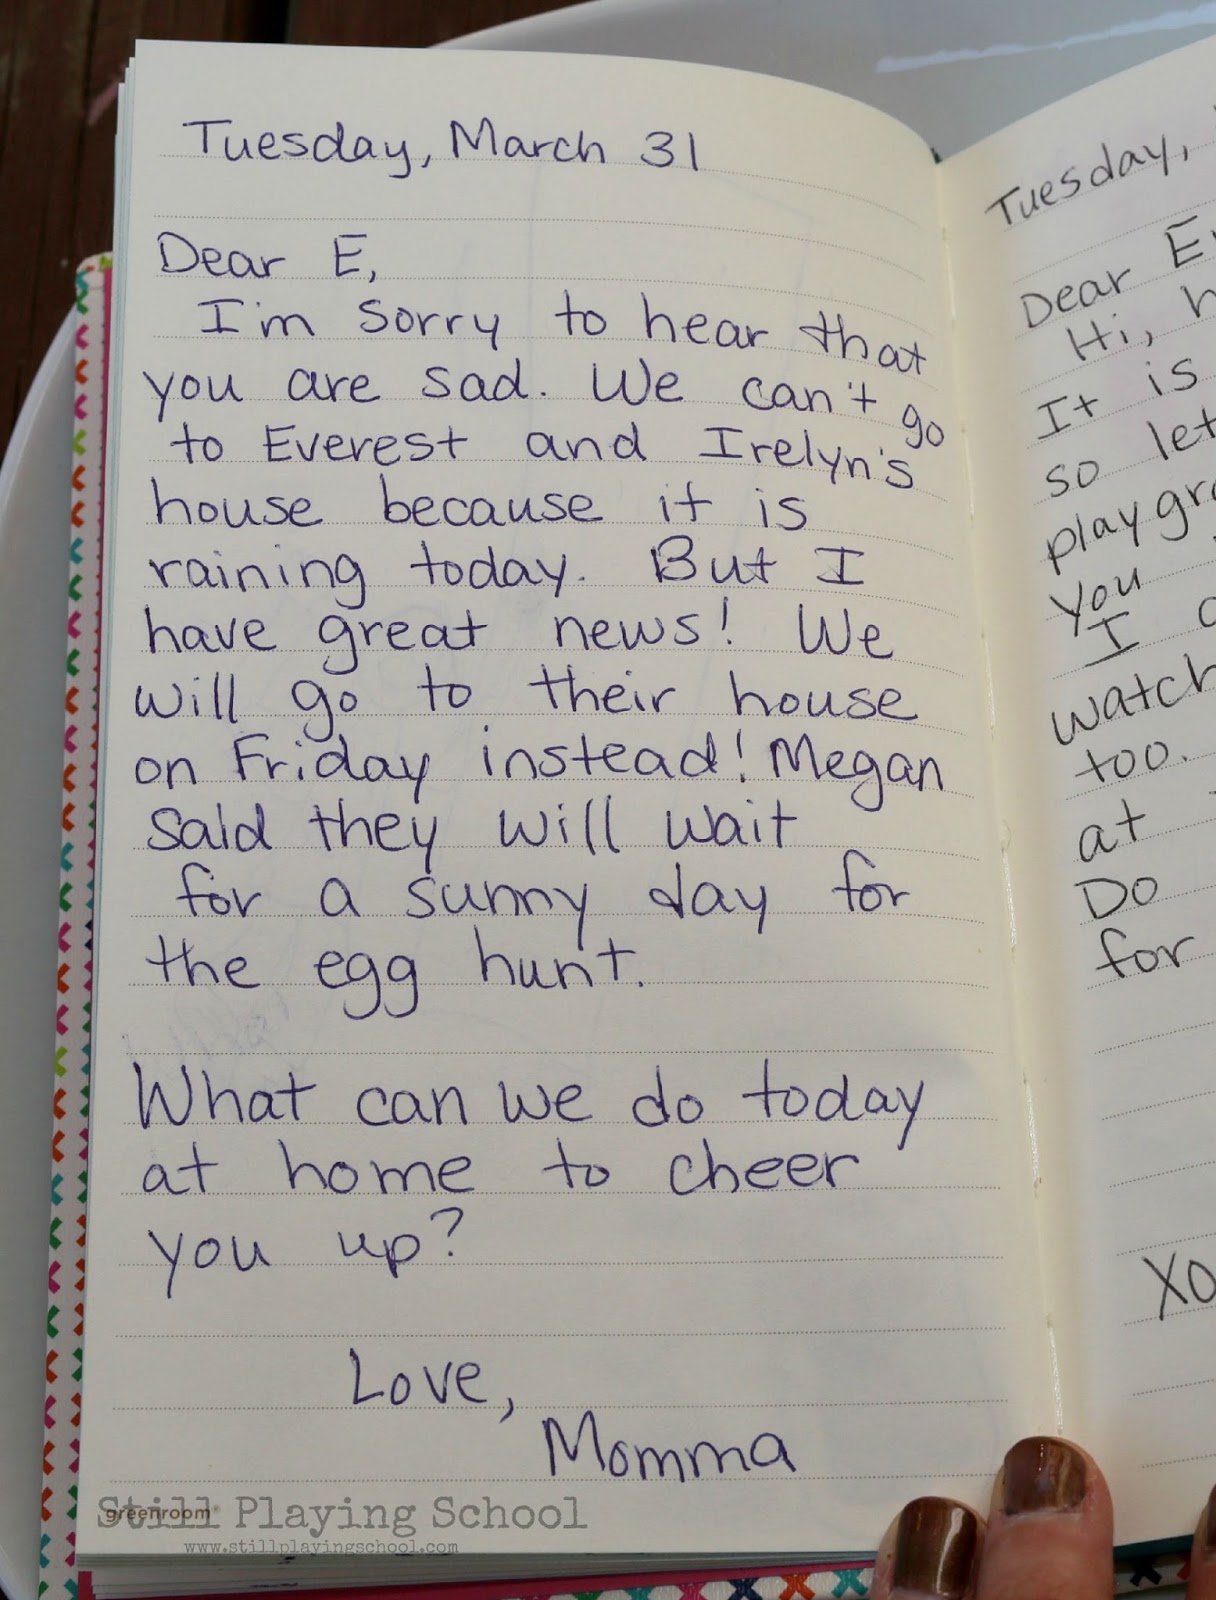 Tuesday, March 31
Dear E,
I'm sorry to hear that
you are sad. We can't go
to Everest and Irelyn's
house because it is
raining today. But I
have great news! We
will go to their house
on Friday instead! Megan
said they will wait
for a sunny day for
the egg hunt.
What can we do today
at home to cheer
you up?
Love,
Momma
greenroom
Still Playing School
www.stillplayingschool.com
Tuesday,
Dear E
Hi,
It is
so let
playgr
you
I
watch
too.
at
Do
for
XO